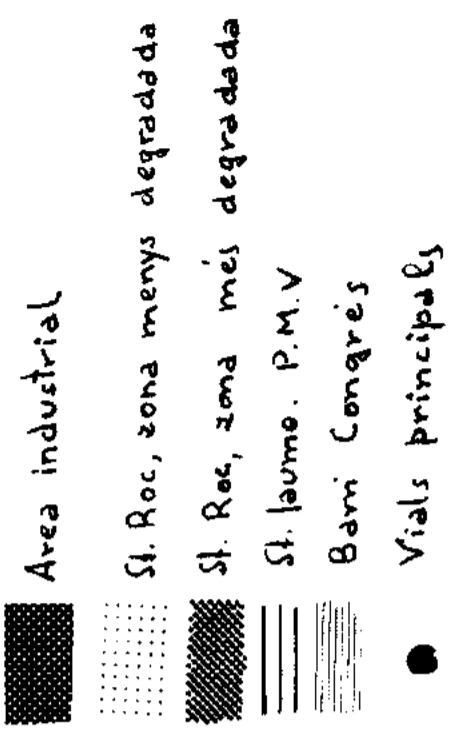 Area industrial
St. Roc, zona menys degradada
St. Roc, zona més degradada
St. Jaume. P.M.V
Barri Congrés
Vials principals